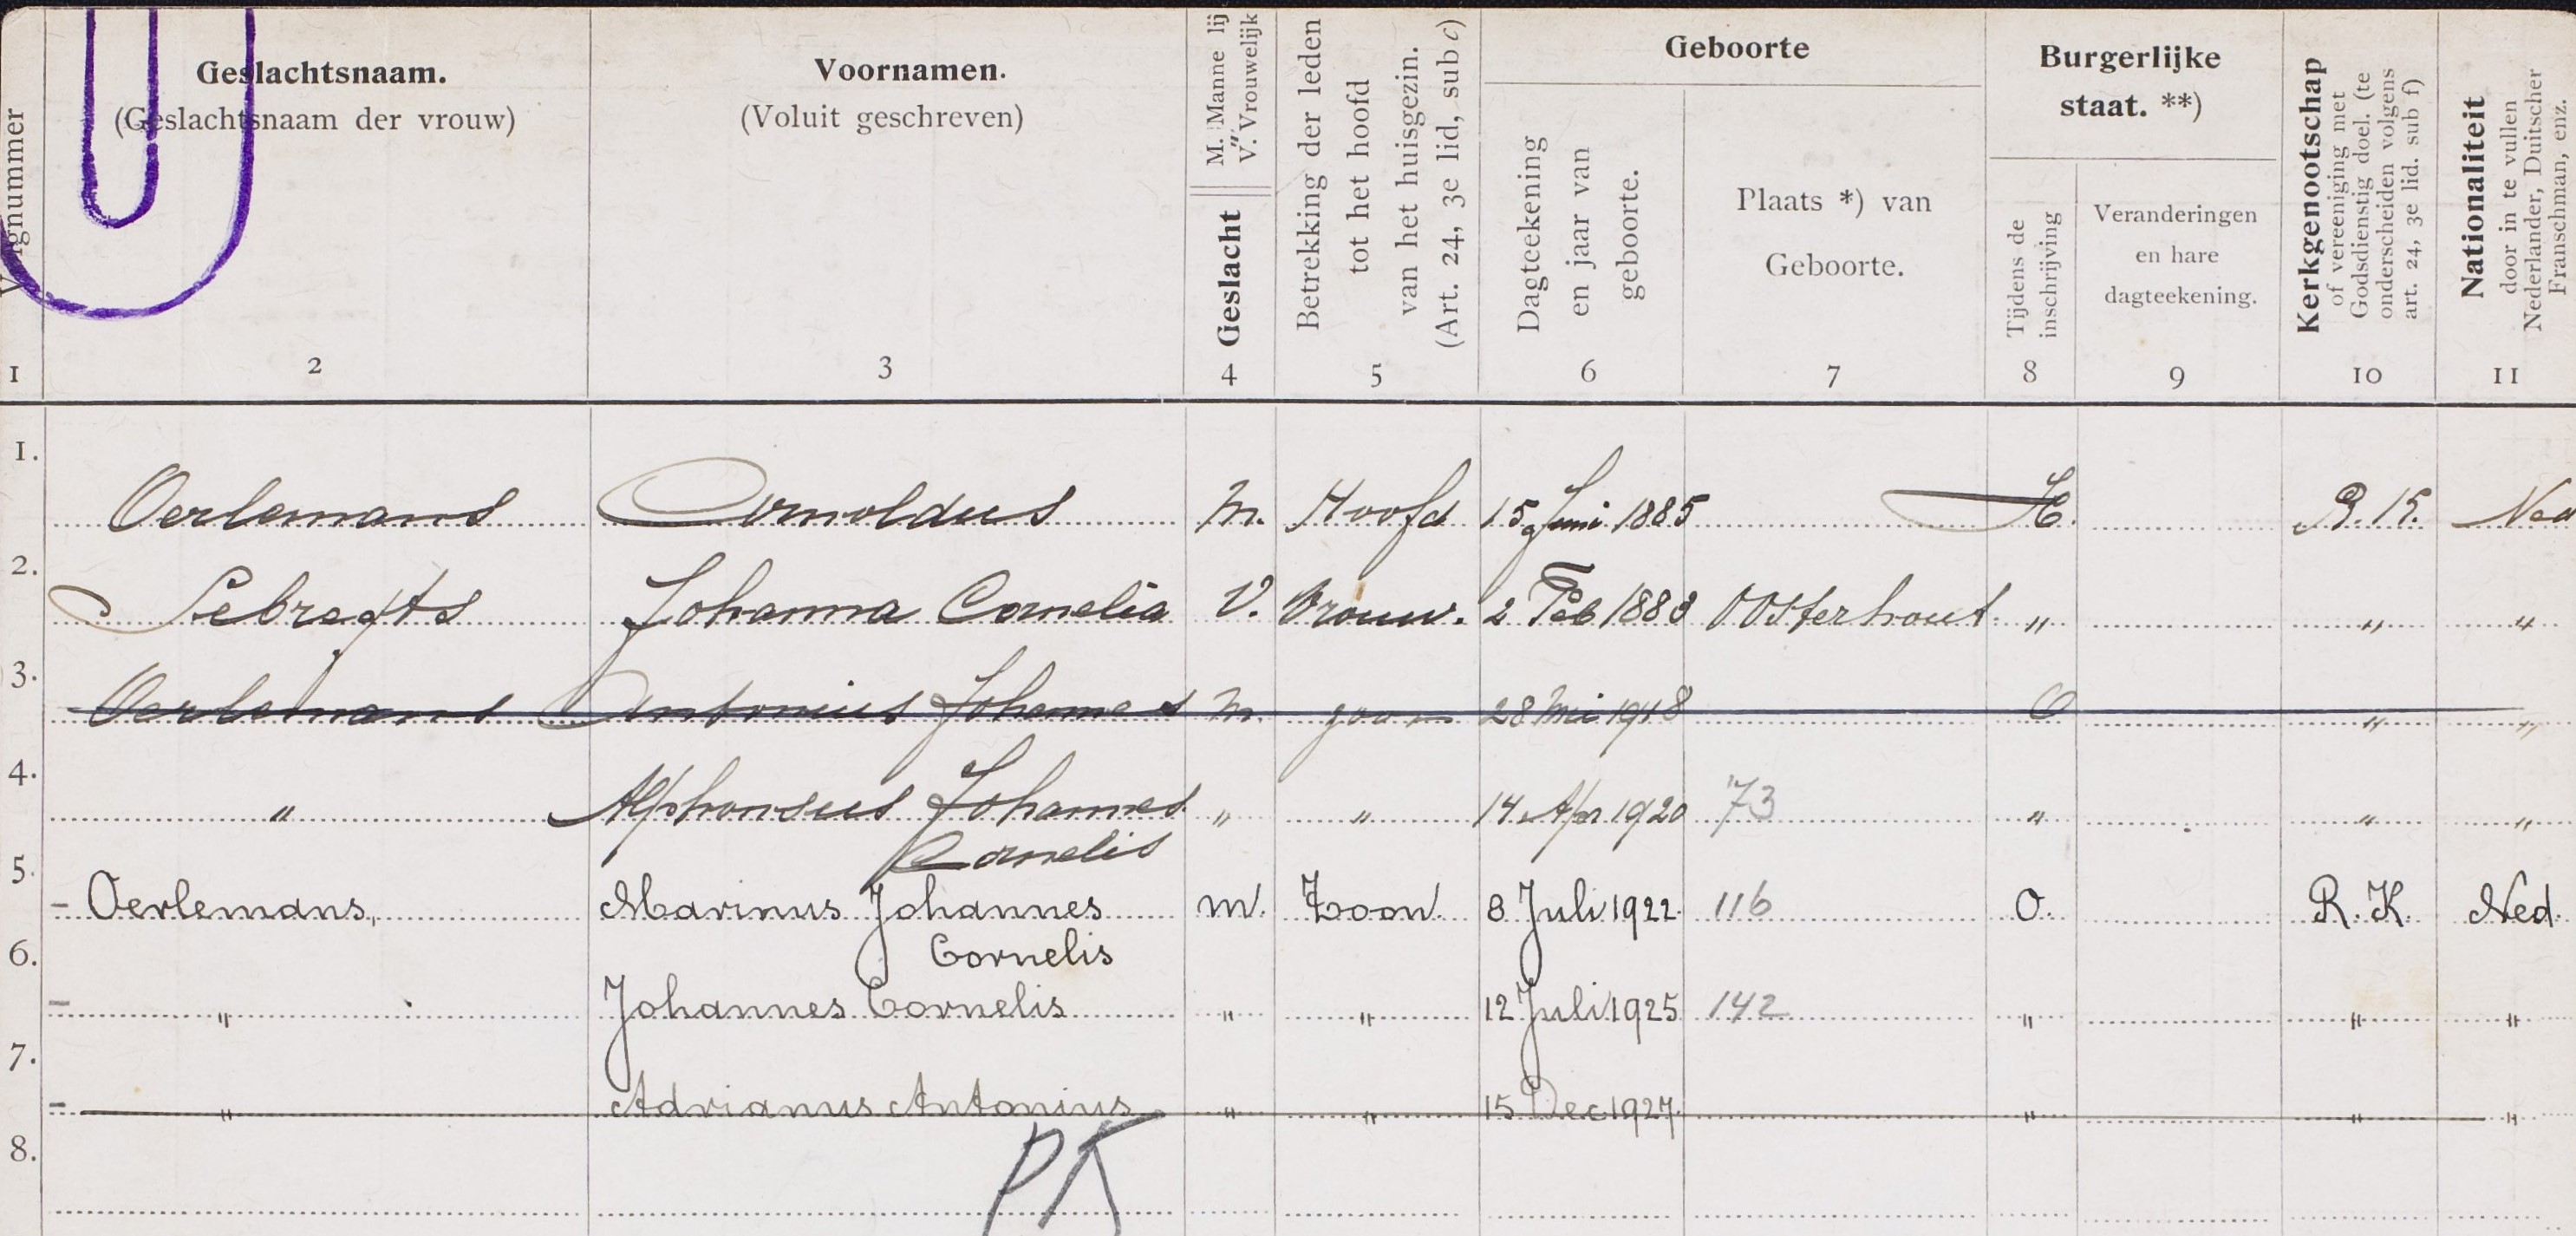 Volgnummer
1
Geslachtsnaam.
(Geslachtsnaam der vrouw)
2
Voornamen.
(Voluit geschreven)
3
M. Mannelij
V. Vrouwelijk
Geslacht
4
Betrekking der leden
tot het hoofd
van het huisgezin.
(Art. 24, 3e lid, sub c)
5
Geboorte
Dagteekening
en jaar van
geboorte.
6
Plaats *) van
Geboorte.
7
Burgerlijke
staat. **)
Tijdens de
inschrijving
8
Veranderingen
en hare
dagteekening.
9
Kerkgenootschap
of vereeniging met
Godsdienstig doel. (te
onderscheiden volgens
art. 24, 3e lid. sub f)
10
Nationaliteit
door in te vullen
Nederlander, Duitscher
Franschman, enz.
11
1. Oerlemans Arnoldus M. Hoofd 15 Juni 1885 H. R. K. Ned
2. Sebregts Johanna Cornelia V. Vrouw. 2 Feb 1883 Oosterhout " " "
3. Oerlemans Antonius Johannes M. zoon 28 Mei 1918 O " "
4. " Alphonsus Johannes " " 14 Apr 1920 73 " " "
Cornelis
5. Oerlemans, Marinus Johannes m. Zoon 8 Juli 1922 116 O. R. K. Ned.
Cornelis
6. " Johannes Cornelis " " 12 Juli 1925 142 " " "
7. " Adrianus Antonius " " 15 Dec 1927 " " "
8.
PK